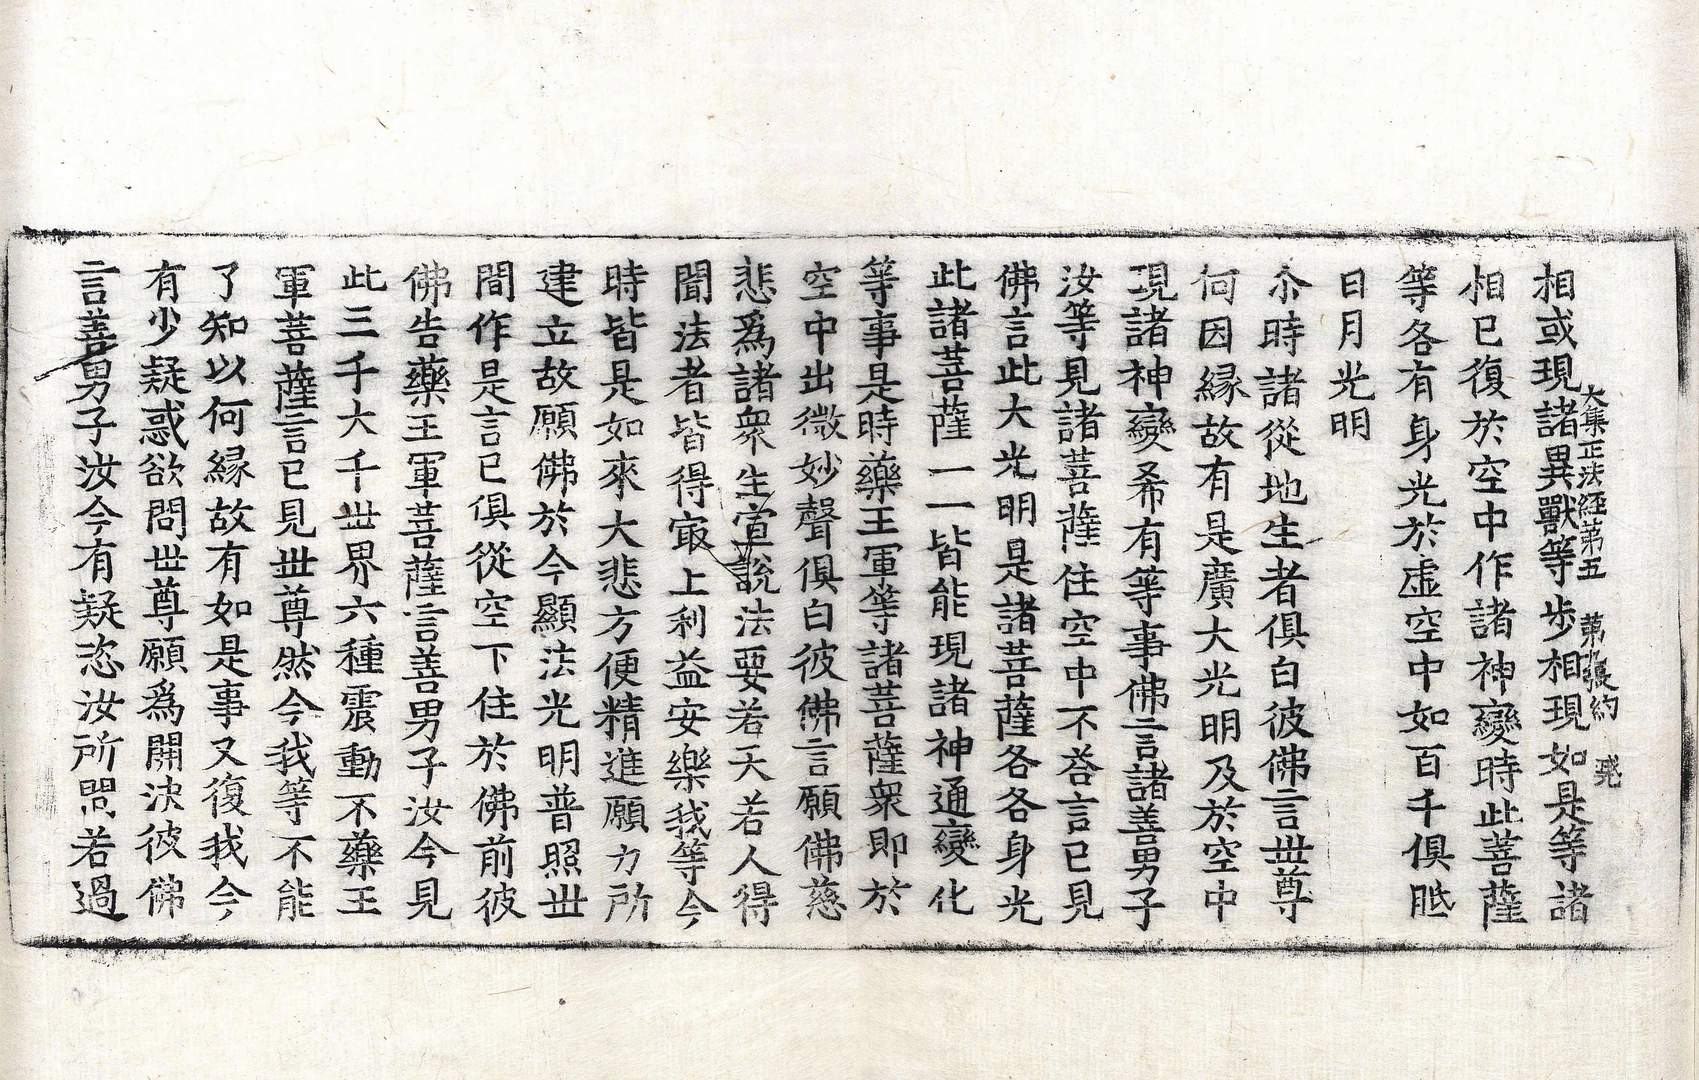 大集正法經第五 第 張 約
相或現諸異獸等步相現如是等諸
相已復於空中作諸神變時此菩薩
等各有身光於虛空中如百千俱胝
日月光明
尒時諸從地生者俱白彼佛言世尊
何因縁故有是廣大光明及於空中
現諸神變希有等事佛言諸善男子
汝等見諸菩薩住空中不荅言已見
佛言此大光明是諸菩薩各各身光
此諸菩薩一一皆能現諸神通變化
等事是時藥王軍等諸菩薩衆即於
空中出微妙聲俱白彼佛言願佛慈
悲爲諸衆生宣說法要若天若人得
聞法者皆得㝡上利益安樂我等今
時皆是如來大悲方便精進願力所
建立故願佛於今顯法光明普照世
間作是言已俱從空下住於佛前彼
佛告藥王軍菩薩言善男子汝今見
此三千大千世界六種震動不藥王
軍菩薩言已見世尊然今我等不能
了知以何縁故有如是事又復我今
有少疑惑欲問世尊願爲開決彼佛
言善男子汝今有疑恣汝所問若過